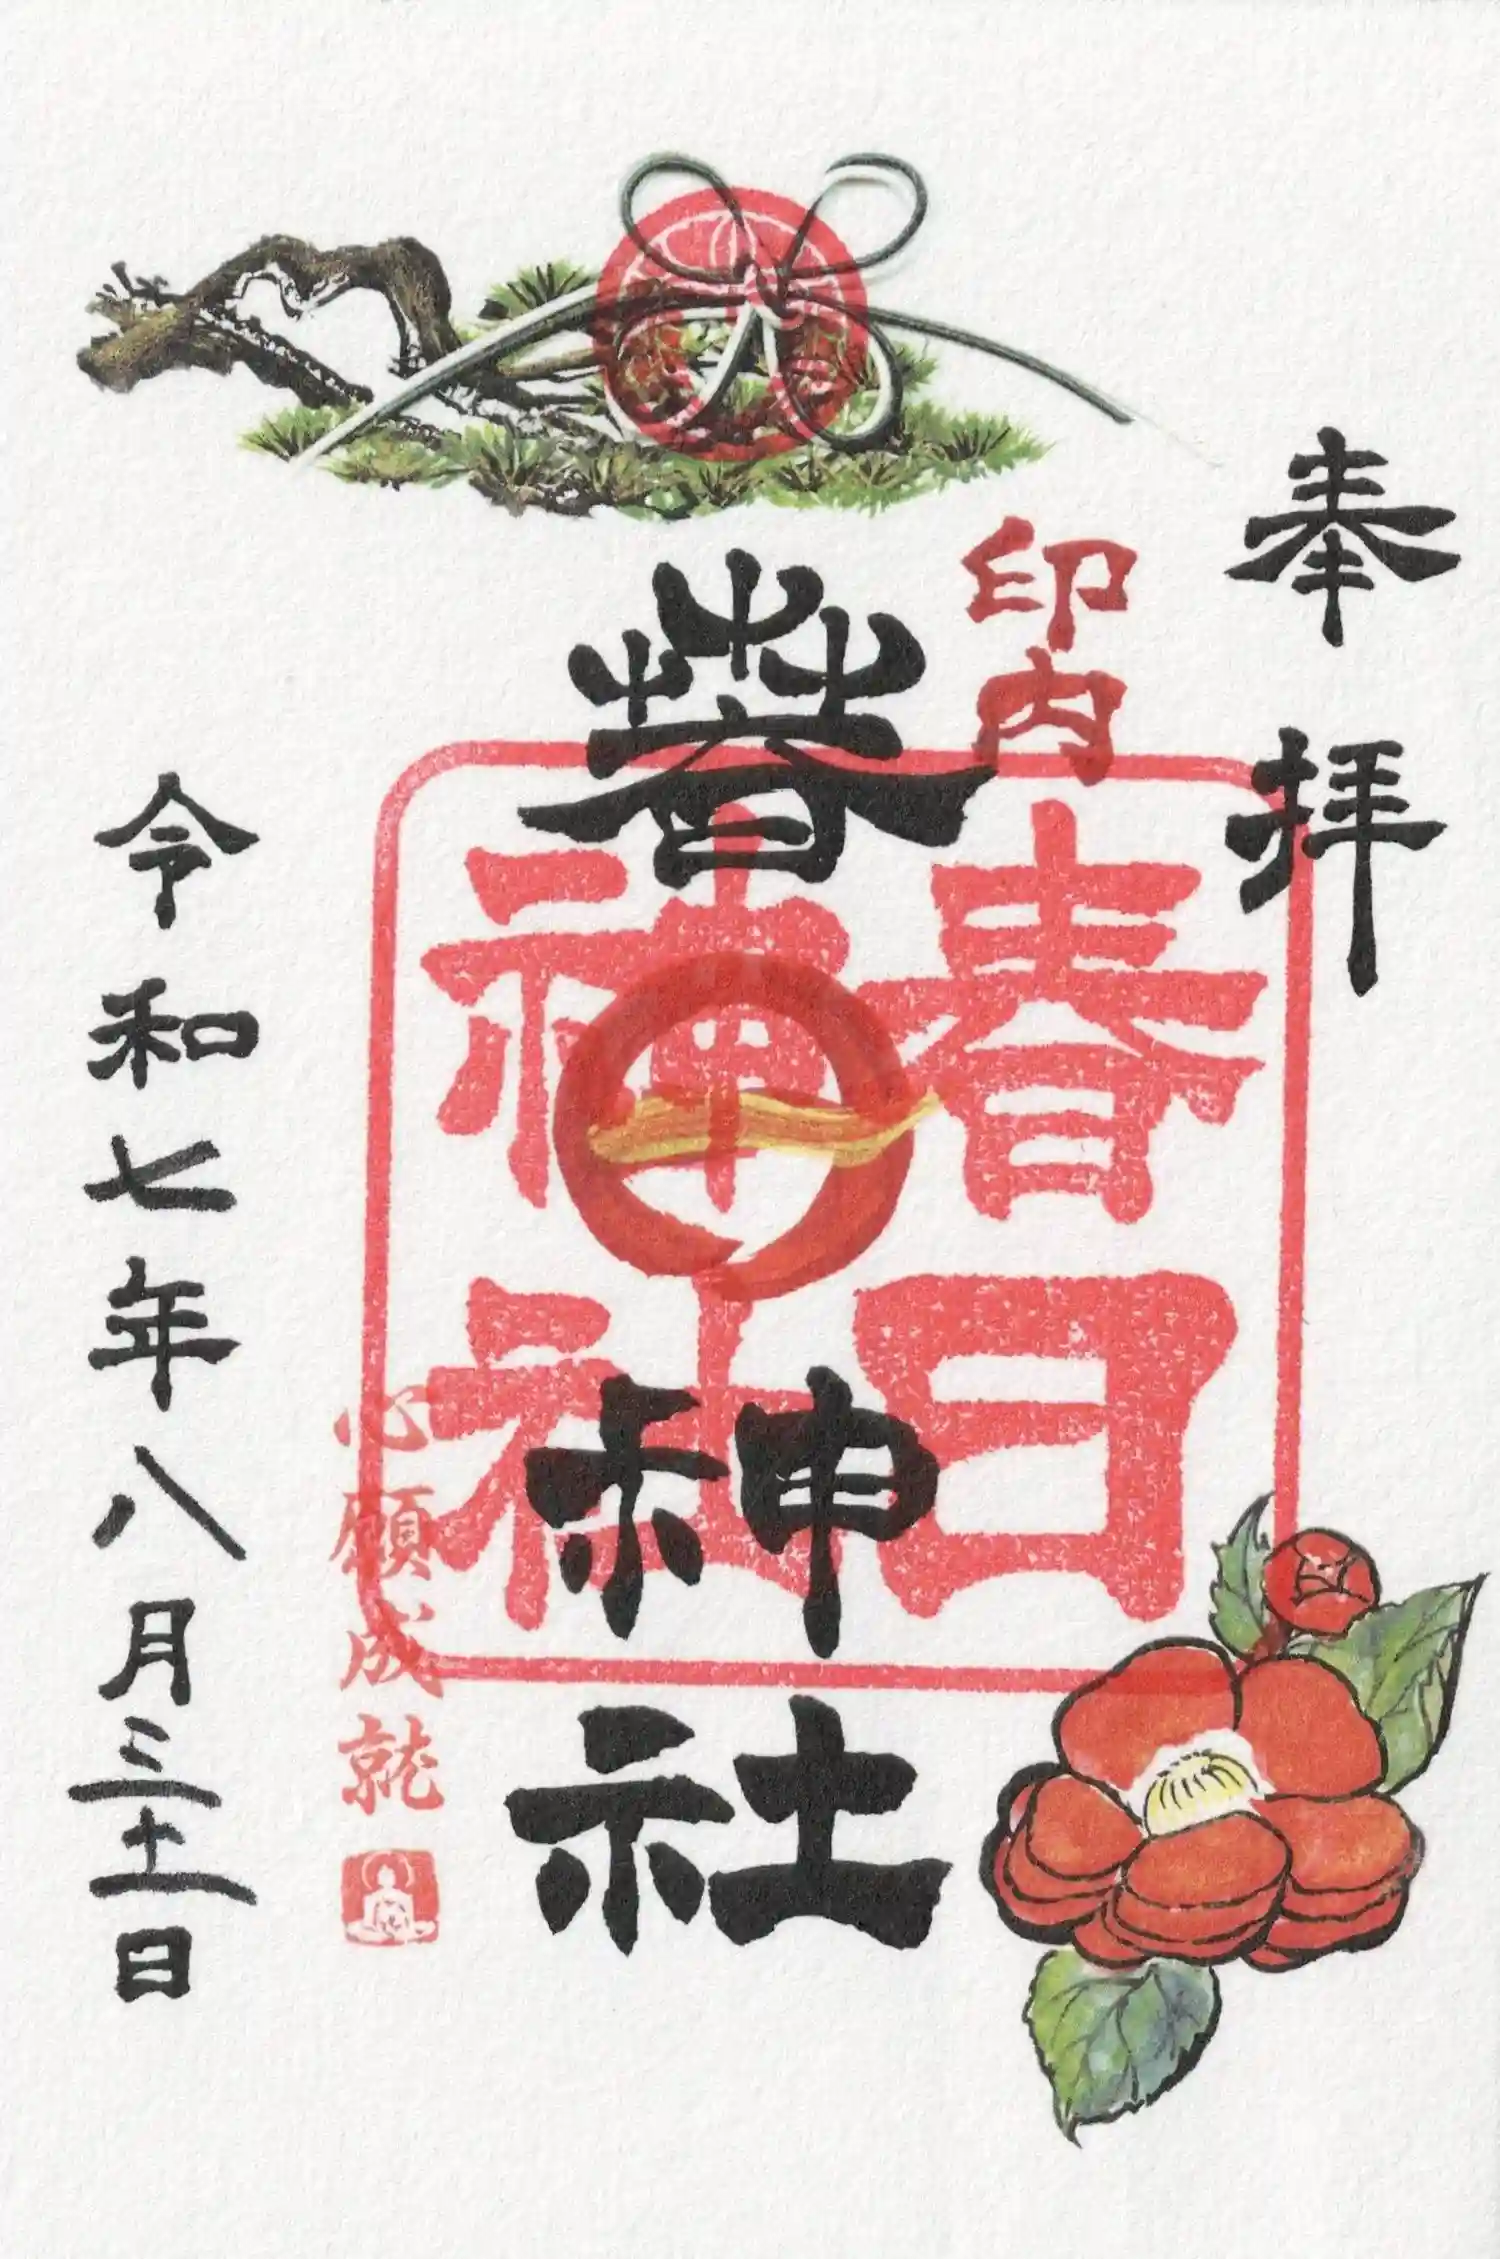 奉拝
印内
春日
神社
春日神社
心願成就
令和七年八月三十一日